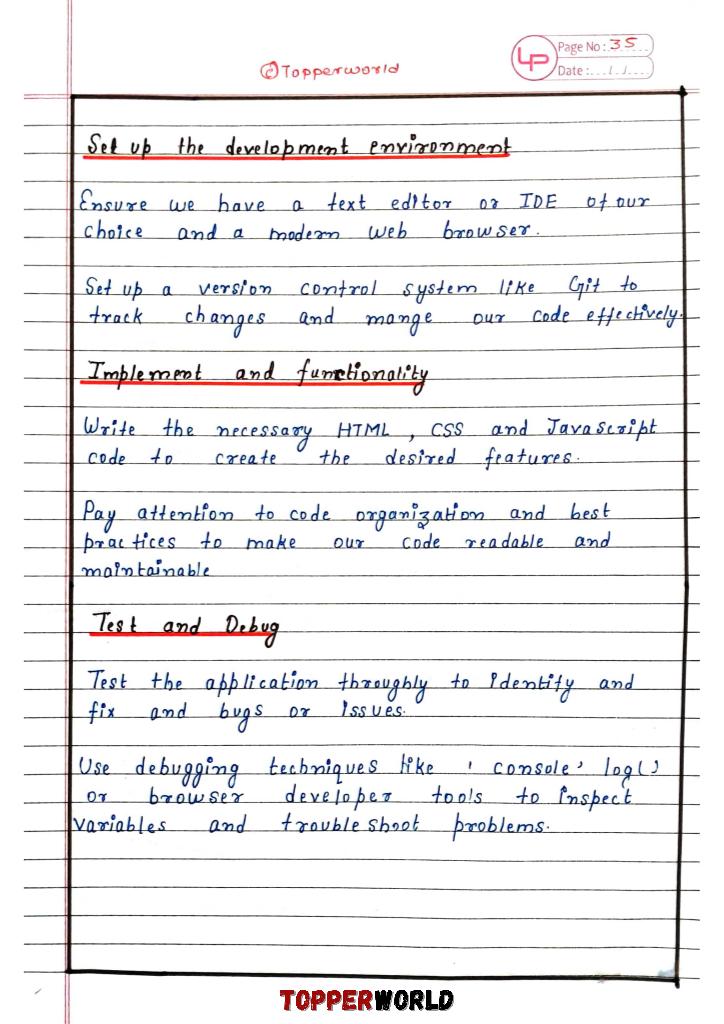 Page No: 35
LP
@Topperworld
Date :.../../...
Set up the development environment
Ensure we have a text editor or IDE of our
choice and a modern web browser.
Set up a version control system like Git to
track changes and mange our code effectively.
Implement and functionality
Write the necessary HTML , CSS and JavaScript
code to create the desired features.
Pay attention to code organization and best
practices to make our code readable and
maintainable
Test and Debug
Test the application throughly to identify and
fix and bugs or issues.
Use debugging techniques like ' console' log()
or browser developer tools to inspect
variables and trouble shoot problems.
TOPPERWORLD